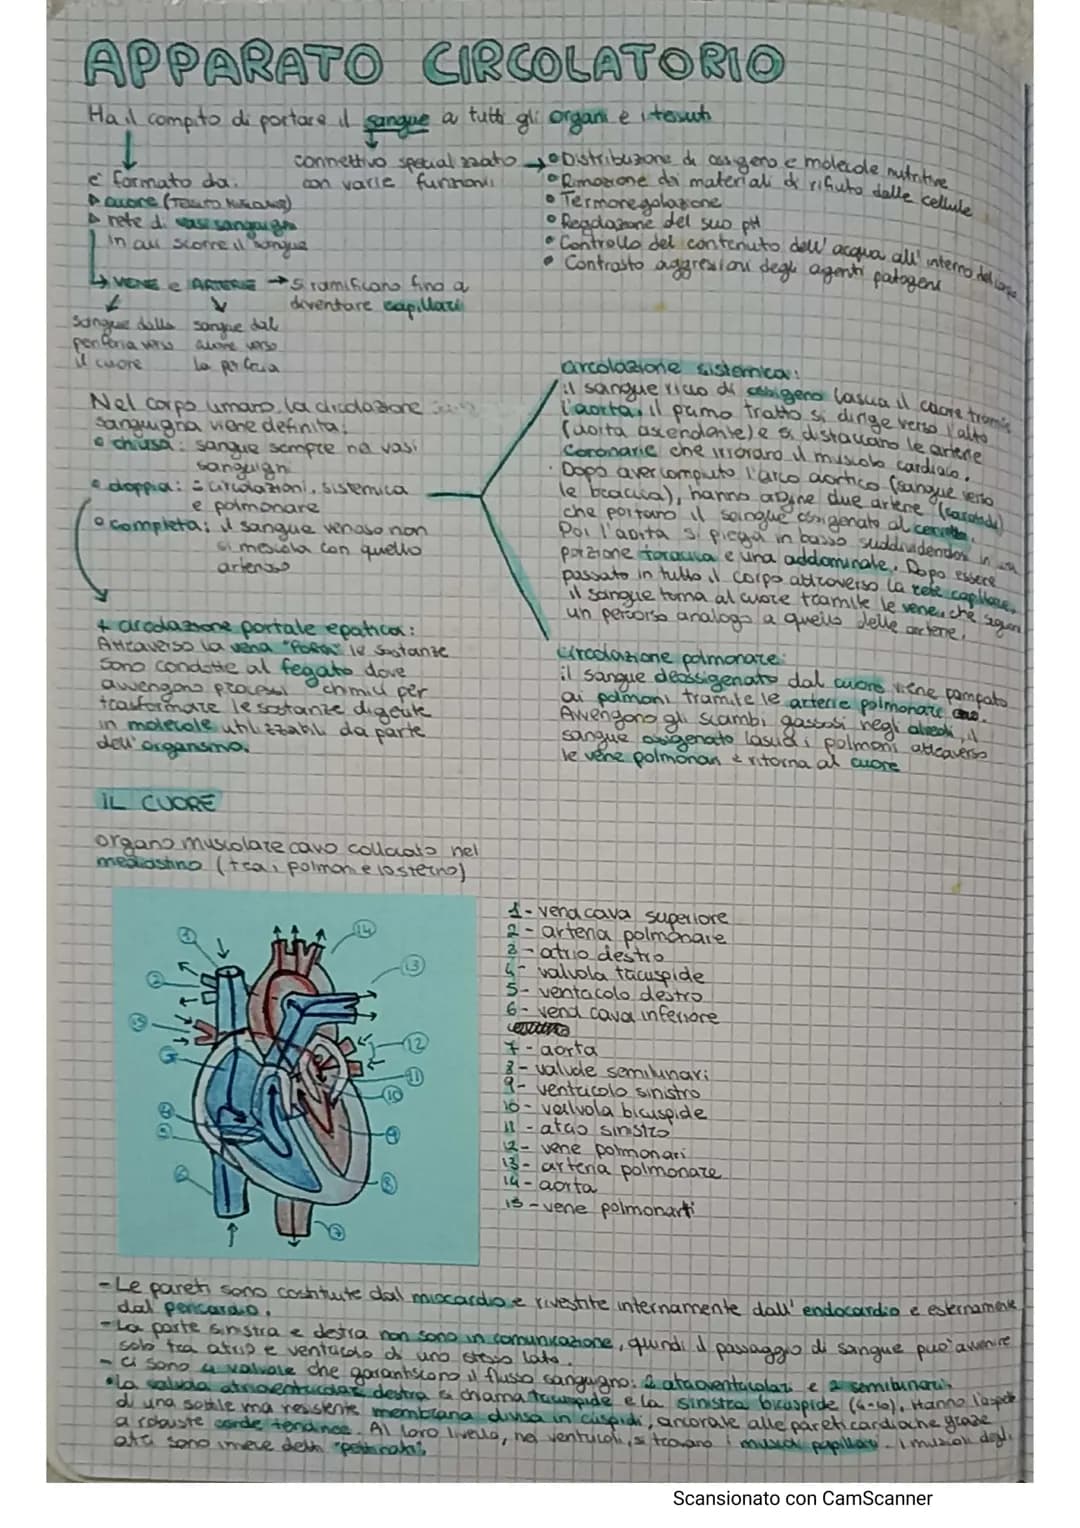 APPARATO CIRCOLATORIO
Ha il compito di portare il sangue a tutti gli organi e i tessuti
connettivo specializzato
con varie funzioni
• Distribuzione di ossigeno e molecole nutritive
• Rimozione dei materiali di rifiuto dalle cellule
• Termoregolazione
• Regolazione del suo pH
• Controllo del contenuto dell'acqua all'interno del corpo
• Contrasto aggressioni degli agenti patogeni
e' formato da:
cuore (TESSUTO MUSCOLARE)
rete di vasi sanguigni
in cui scorre il sangue
VENE e ARTERIE → Si ramificano fino a
diventare capillari
sangue dalla
periferia verso
il cuore
sangue dal
cuore verso
la periferia
Nel corpo umano la circolazione
sanguigna viene definita:
• chiusa: sangue sempre nei vasi
sanguigni
• doppia: 2 circolazioni, sistemica
e polmonare
• completa: il sangue venoso non
si mescola con quello
arterioso
+ circolazione portale epatica:
Attraverso la vena "PORTA" le sostanze
sono condotte al fegato dove
avvengono processi chimici per
trasformare le sostanze digerite
in molecole utilizzabili da parte
dell'organismo.
circolazione sistemica:
il sangue ricco di ossigeno lascia il cuore tramite
l'aorta. il primo tratto si dirige verso l'alto
(aorta ascendente) e si distaccano le arterie
coronarie che irrorano il muscolo cardiaco.
Dopo aver compiuto l'arco aortico (sangue verso
le braccia), hanno origine due arterie (carotidi)
che portano il sangue ossigenato al cervello.
Poi l'aorta si piega in basso suddividendosi in una
porzione toracica e una addominale. Dopo essere
passato in tutto il corpo attraverso la rete capillare,
il sangue torna al cuore tramite le vene, che seguono
un percorso analogo a quello delle arterie.
circolazione polmonare:
il sangue deossigenato dal cuore viene pompato
ai polmoni tramite le arterie polmonari.
Avvengono gli scambi gassosi negli alveoli, il
sangue ossigenato lascia i polmoni attraverso
le vene polmonari e ritorna al cuore
IL CUORE
organo muscolare cavo collocato nel
mediastino (tra i polmoni e lo sterno)
1
2
15
6
14
13
12
11
10
9
8
7
1- vena cava superiore
2- arteria polmonare
3- atrio destro
4- valvola tricuspide
5- ventricolo destro
6- vena cava inferiore
7- aorta
8- valvole semilunari
9- ventricolo sinistro
10- valvola bicuspide
11- atrio sinistro
12- vene polmonari
13- arteria polmonare
14- aorta
15- vene polmonari
- Le pareti sono costituite dal miocardio e rivestite internamente dall'endocardio e esternamente
dal pericardio.
- La parte sinistra e destra non sono in comunicazione, quindi il passaggio di sangue puo' avvenire
solo tra atrio e ventricolo di uno stesso lato.
- ci sono 4 valvole che garantiscono il flusso sanguigno: 2 atrioventricolari e 2 semilunari.
• La valvola atrioventricolare destra si chiama tricuspide e la sinistra bicuspide (4-10). Hanno l'aspetto
di una sottile ma resistente membrana divisa in cuspidi, ancorate alle pareti cardiache grazie
a robuste corde tendinee. Al loro livello, nei ventricoli, si trovano i muscoli papillari. I muscoli degli
atri sono invece detti "pettinati".
Scansionato con CamScanner